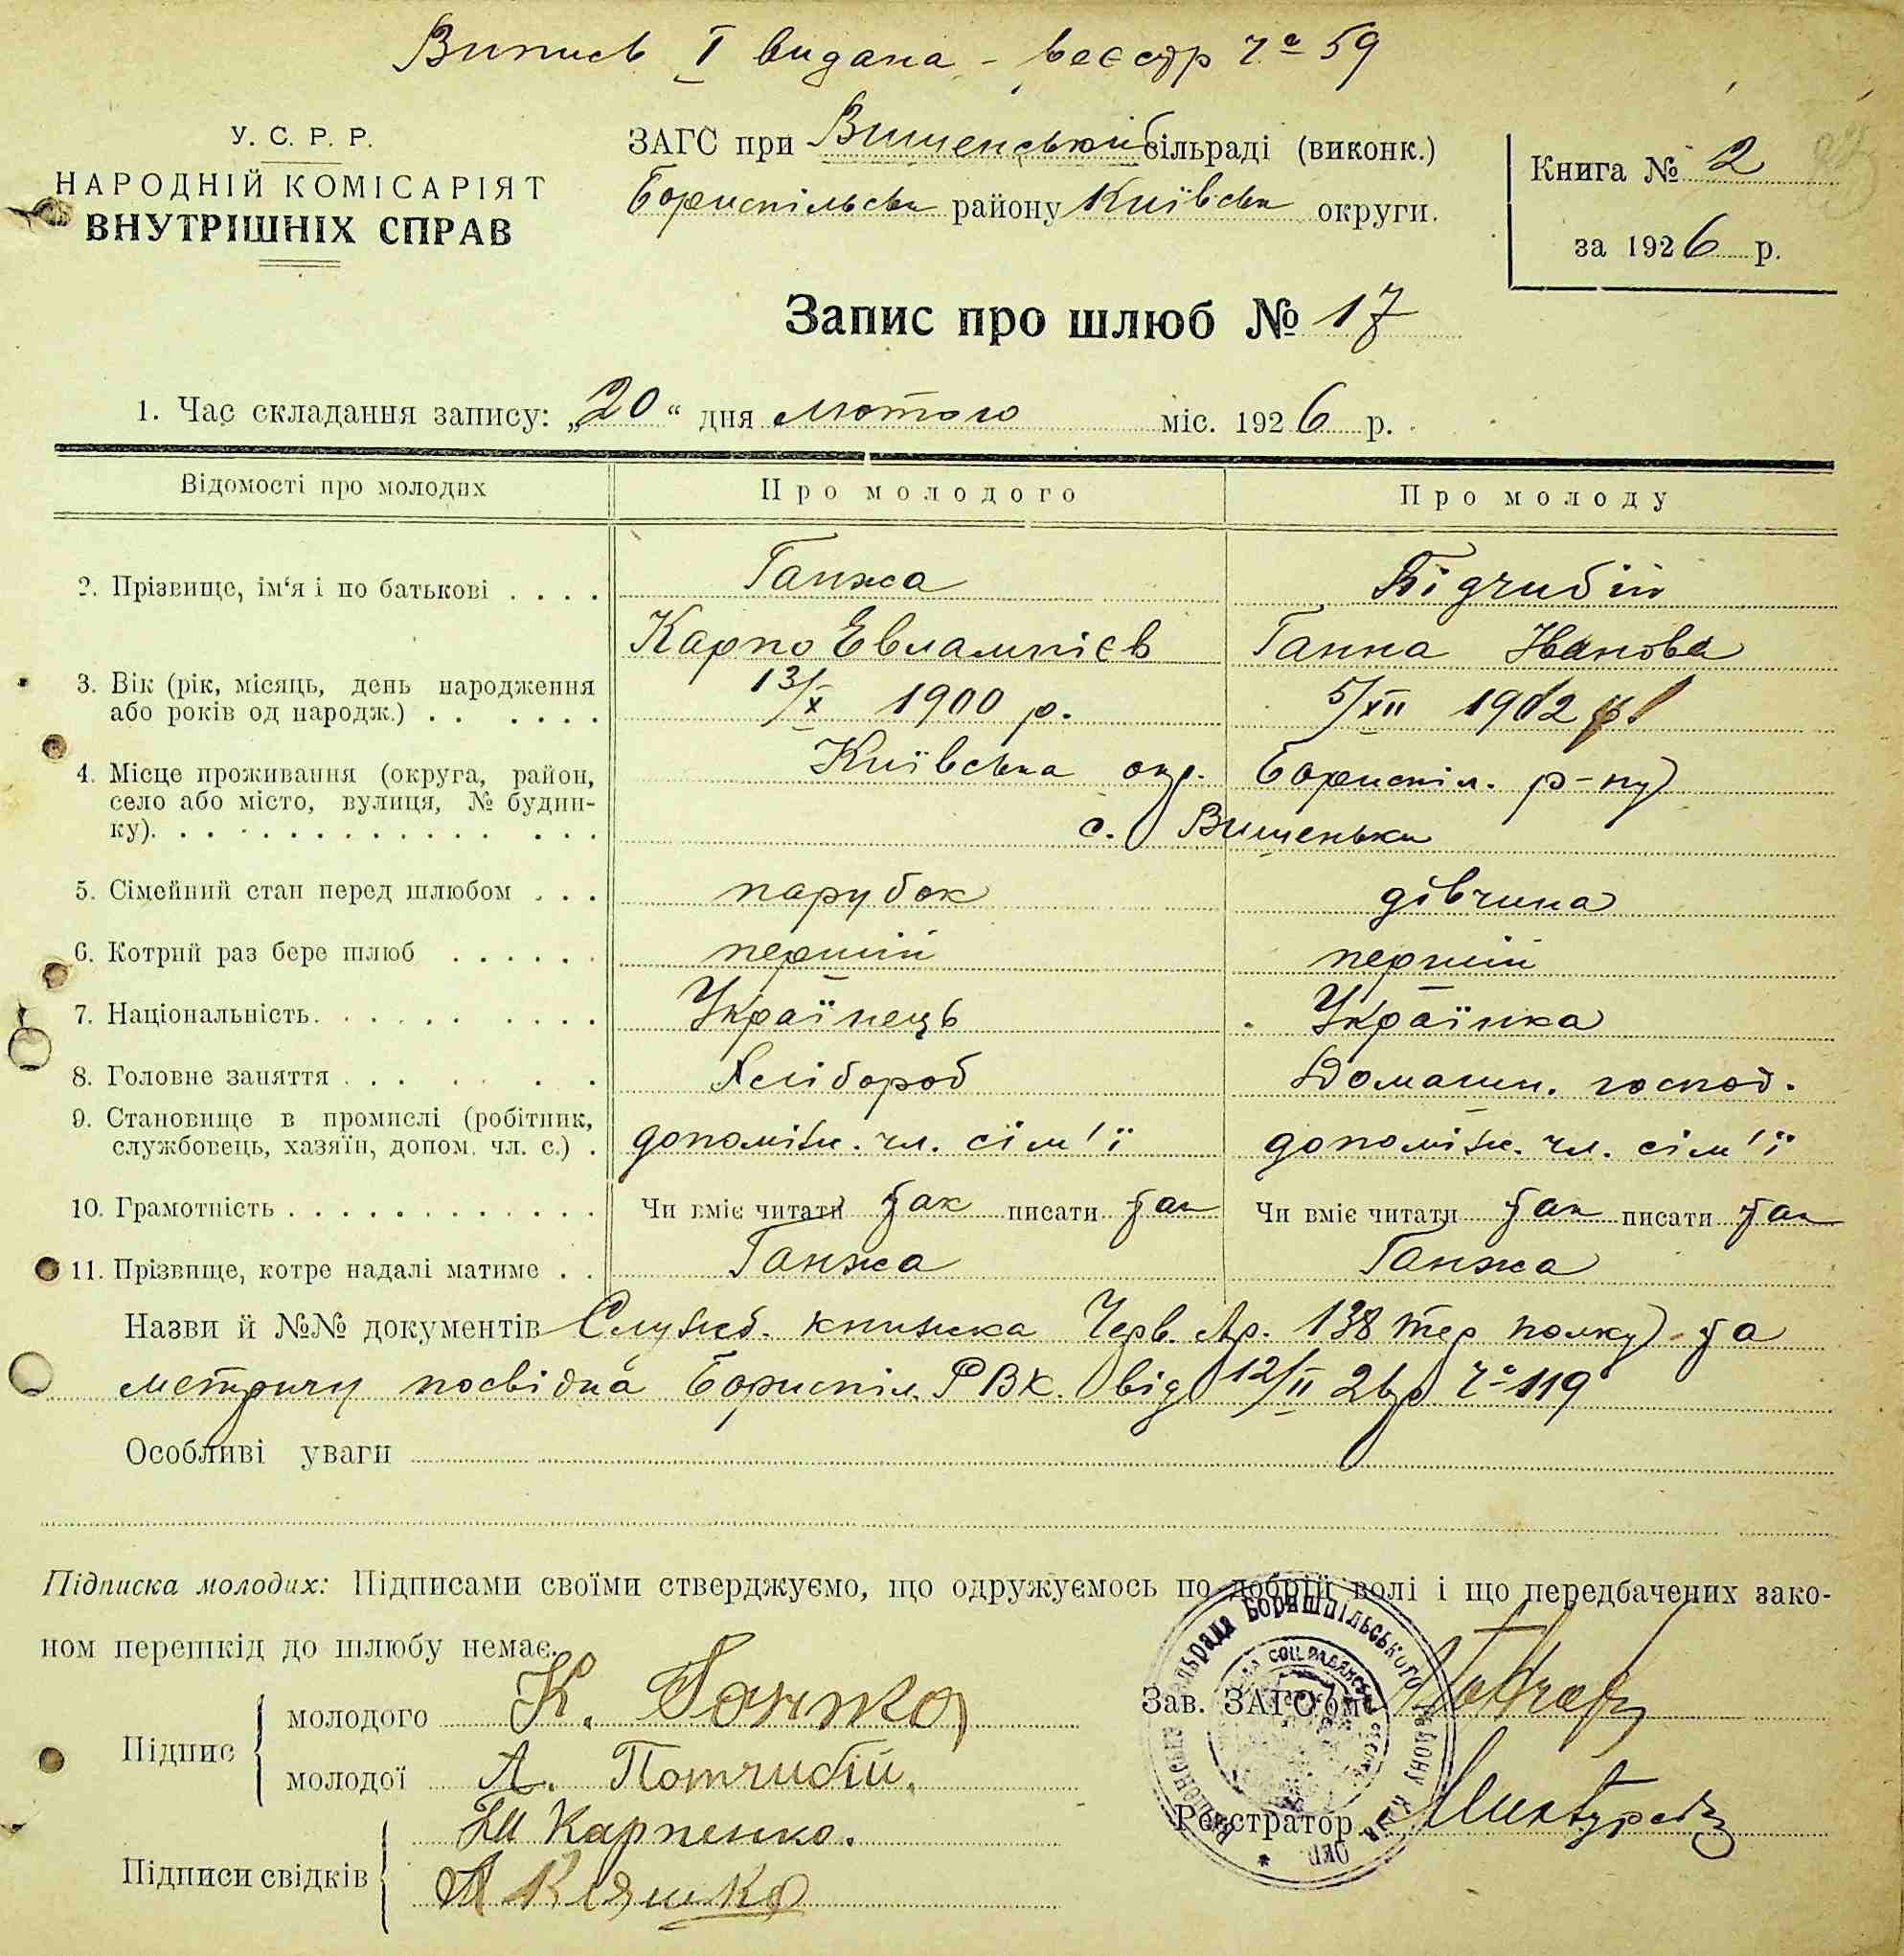 Випись I видана - реєстр ч° 59
У. С. Р. Р.
НАРОДНІЙ КОМІСАРІЯТ
ВНУТРІШНІХ СПРАВ
ЗАГС при Вишенській сільраді (виконк.)
Бориспільськ району Київськ округи.
Книга № 2
за 1926 р.
Запис про шлюб № 17
1. Час складання запису: „20“ дня лютого міс. 1926 р.
Відомості про молодих Про молодого Про молоду
2. Прізвище, ім‘я і по батькові . . . . Ганжа Підчибій
Карпо Евлампієв Ганна Іванова
3. Вік (рік, місяць, день народження
або років од народж.) 13/X 1900 р. 5/XII 1902 р.
4. Місце проживання (округа, район,
село або місто, вулиця, № будин-
ку). Київська окр. Бориспіл. р-ну
с. Вишеньки
5. Сімейний стан перед шлюбом . . . парубок дівчина
6. Котрий раз бере шлюб перший перший
7. Національність. Українець Українка
8. Головне заняття Хлібороб Домашн. господ.
9. Становище в промислі (робітник,
службовець, хазяїн, допом. чл. с.) . допоміжн. чл. сім'ї допоміжн. чл. сім'ї
10. Грамотність Чи вміє читати так писати так Чи вміє читати так писати так
11. Прізвище, котре надалі матиме . . Ганжа Ганжа
Назви й №№ документів Служб. книжка Черв. Ар. 138 тер полку та
метричн посвідка Бориспіл. РВК. від 12/II 26 р ч° 119
Особливі уваги
Підписка молодих: Підписами своїми стверджуємо, що одружуємось по добрій волі і що передбачених зако-
ном перешкід до шлюбу немає.
Підпис
молодого К. Ганжа
молодої А. Потчибій.
Зав. ЗАГС'ом
Реєстратор
Підписи свідків
Карпенко.
А Кляшко
сільрада Боришпільського району Ки окр.